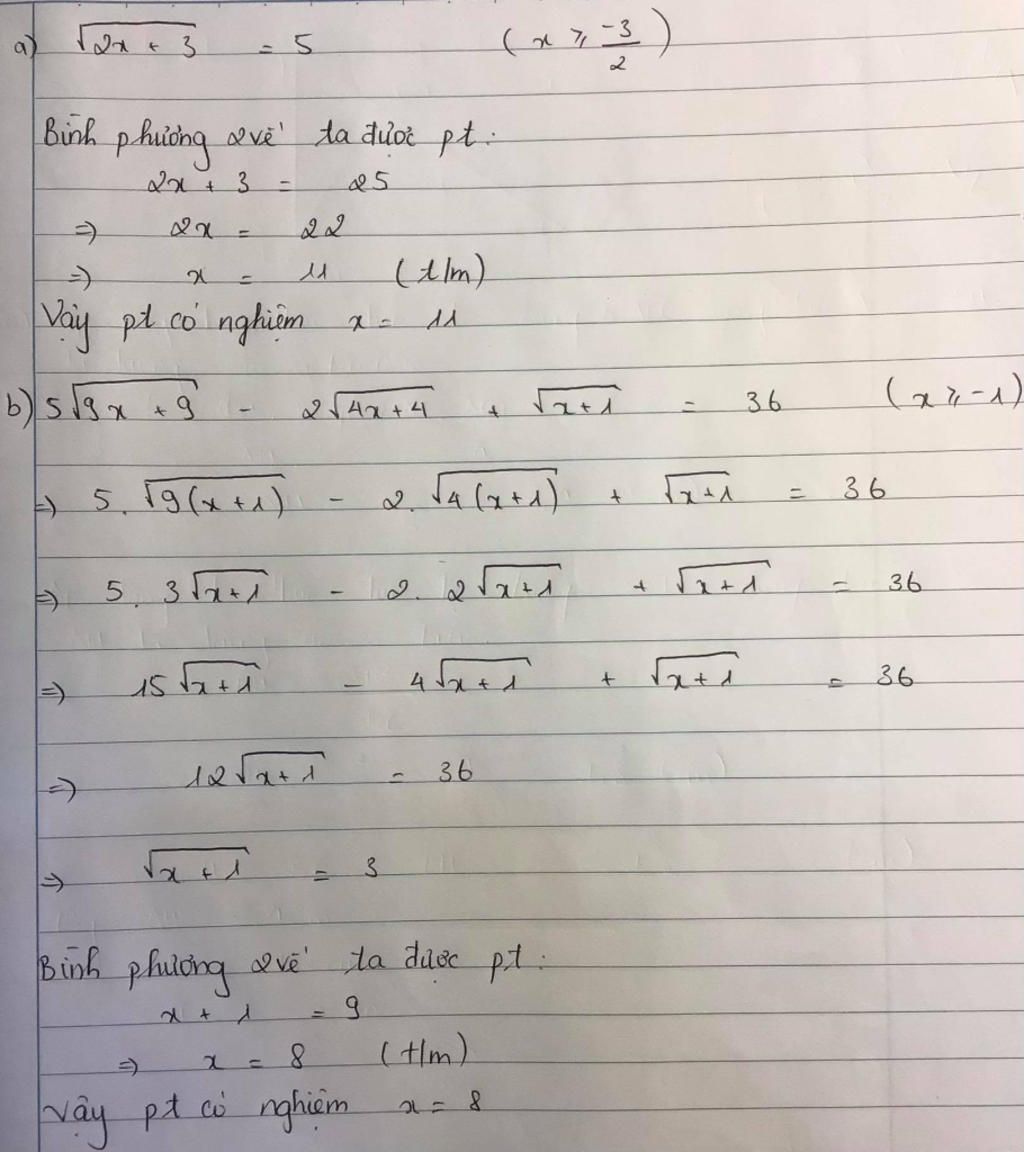 a) √(2x + 3) = 5 (x ≥ -3/2)
Bình phương 2 vế ta được pt:
2x + 3 = 25
⇒ 2x = 22
⇒ x = 11 (t/m)
Vậy pt có nghiệm x = 11
b) 5√(9x + 9) - 2√(4x + 4) + √(x + 1) = 36 (x ≥ -1)
⇒ 5. √(9(x + 1)) - 2. √(4(x + 1)) + √(x + 1) = 36
⇒ 5. 3√(x + 1) - 2. 2√(x + 1) + √(x + 1) = 36
⇒ 15√(x + 1) - 4√(x + 1) + √(x + 1) = 36
⇒ 12√(x + 1) = 36
⇒ √(x + 1) = 3
Bình phương 2 vế ta được pt:
x + 1 = 9
⇒ x = 8 (t/m)
Vậy pt có nghiệm x = 8